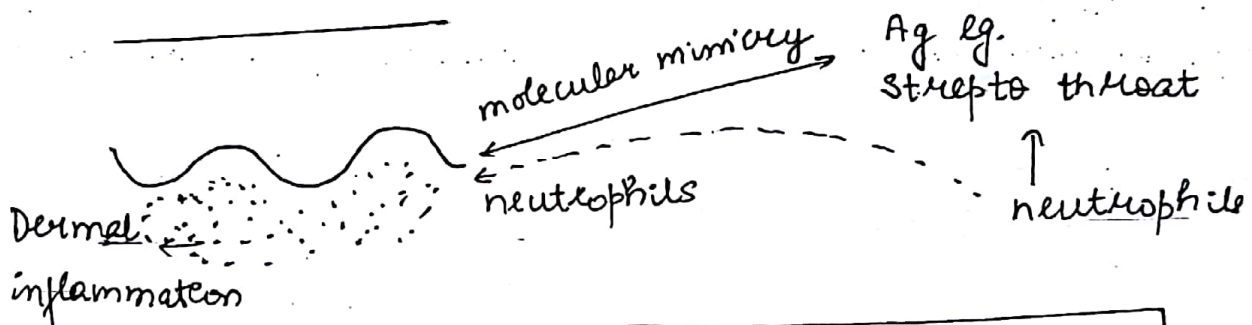 molecular mimicry
Ag eg.
strepto throat
neutrophils
neutrophils
Dermal
inflammation